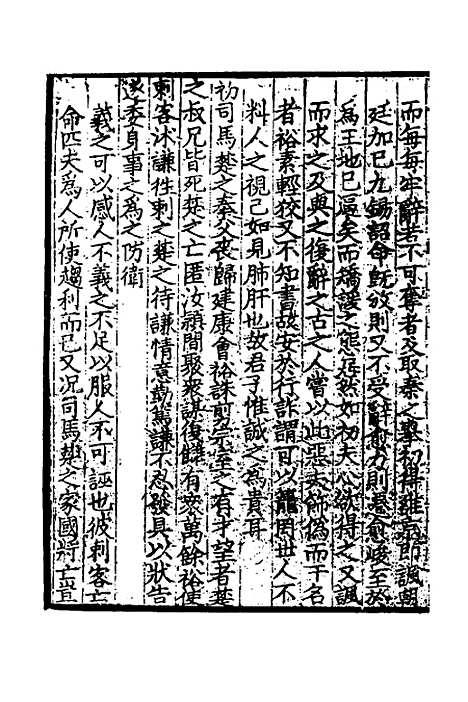 而每每牢辭若不可奪者及取秦之舉初得雒京即諷朝
廷加己九錫詔命既效則又不受辭愈力則進愈峻至於
為王地已逼矣而矯謾之態居然如初夫心欲得之又諷
而求之及與之復辭之古之人嘗以此惡夫飾偽而干名
者裕素輕狡又不知書故安於行詐謂可以籠罔世人不
料人之視己如見肺肝也故君子惟誠之為貴耳
初司馬楚之奉父喪歸建康會裕誅前宗室之有才望者楚
之叔兄皆死楚之亡匿汝潁間聚衆謀復讎有衆萬餘裕使
刺客沐謙往刺之楚之待謙情意勤篤謙不忍發具以狀告
遂委身事之為之防衛
義之可以感人不義之不足以服人不可誣也彼刺客亡
命匹夫為人所使趨利而已又況司馬楚之家國將亡豈